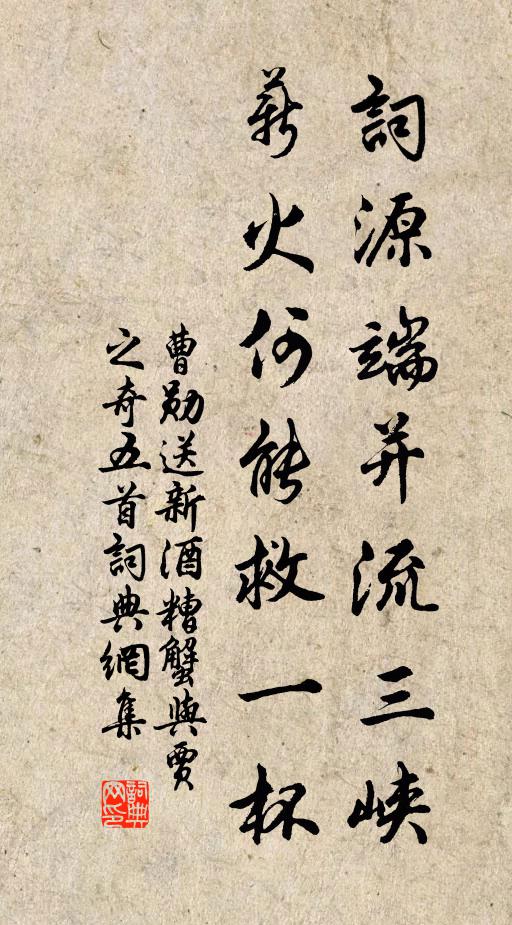 詞源端并流三峽
薪火何能救一杯
曹勛送新酒糟蟹與賈
之奇五首詞典網集
詞典
网印